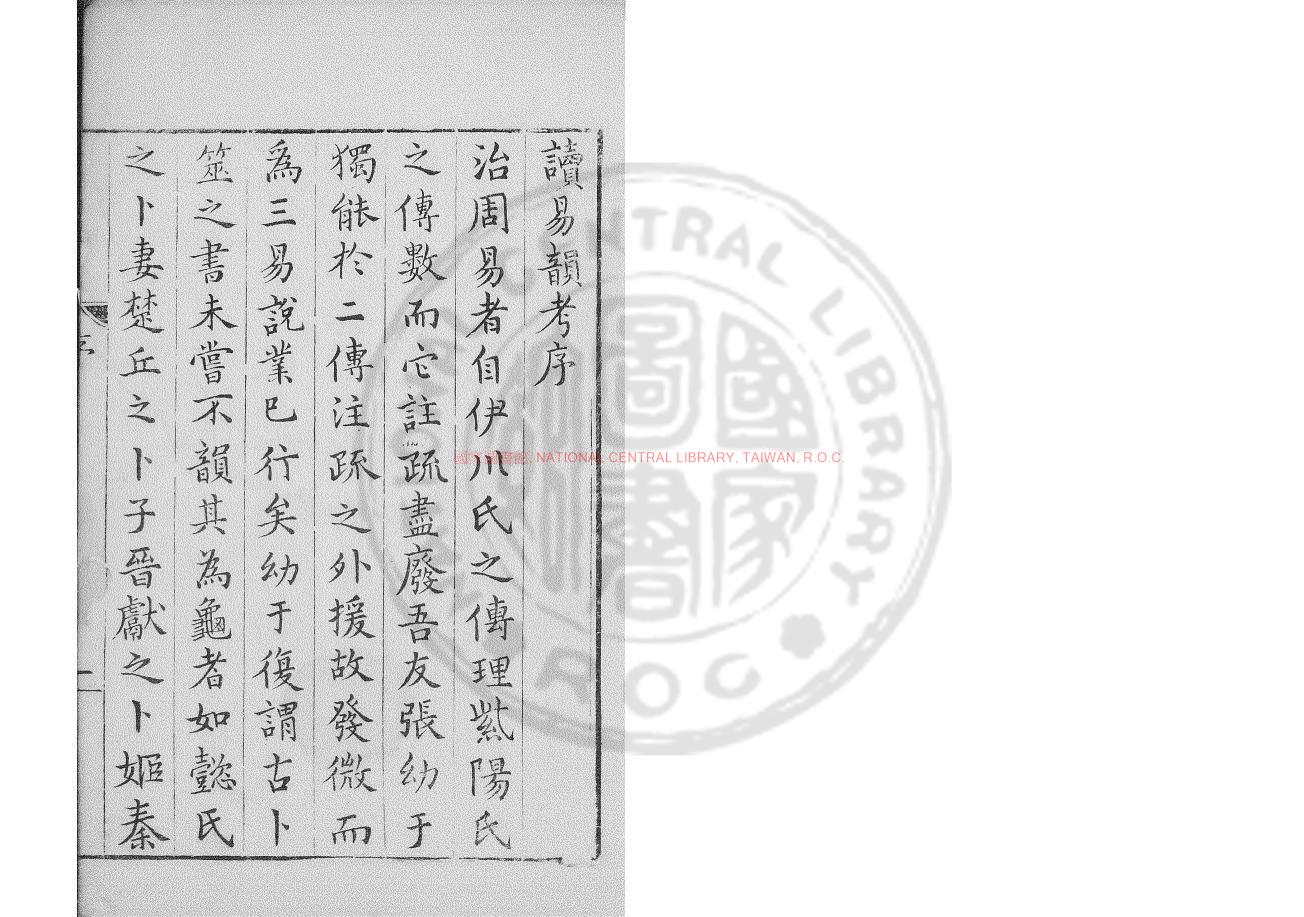 讀易韻考序
治周易者自伊川氏之傳理紫陽氏
之傳數而它註疏盡廢吾友張幼于
獨能於二傳注疏之外援故發微而
為三易說業已行矣幼于復謂古卜
筮之書未嘗不韻其為龜者如懿氏
之卜妻楚丘之卜子晉獻之卜姬秦
序
一
國家圖書館, NATIONAL CENTRAL LIBRARY, TAIWAN, R.O.C.
國家圖書
NATIONAL CENTRAL LIBRARY
R.O.C.